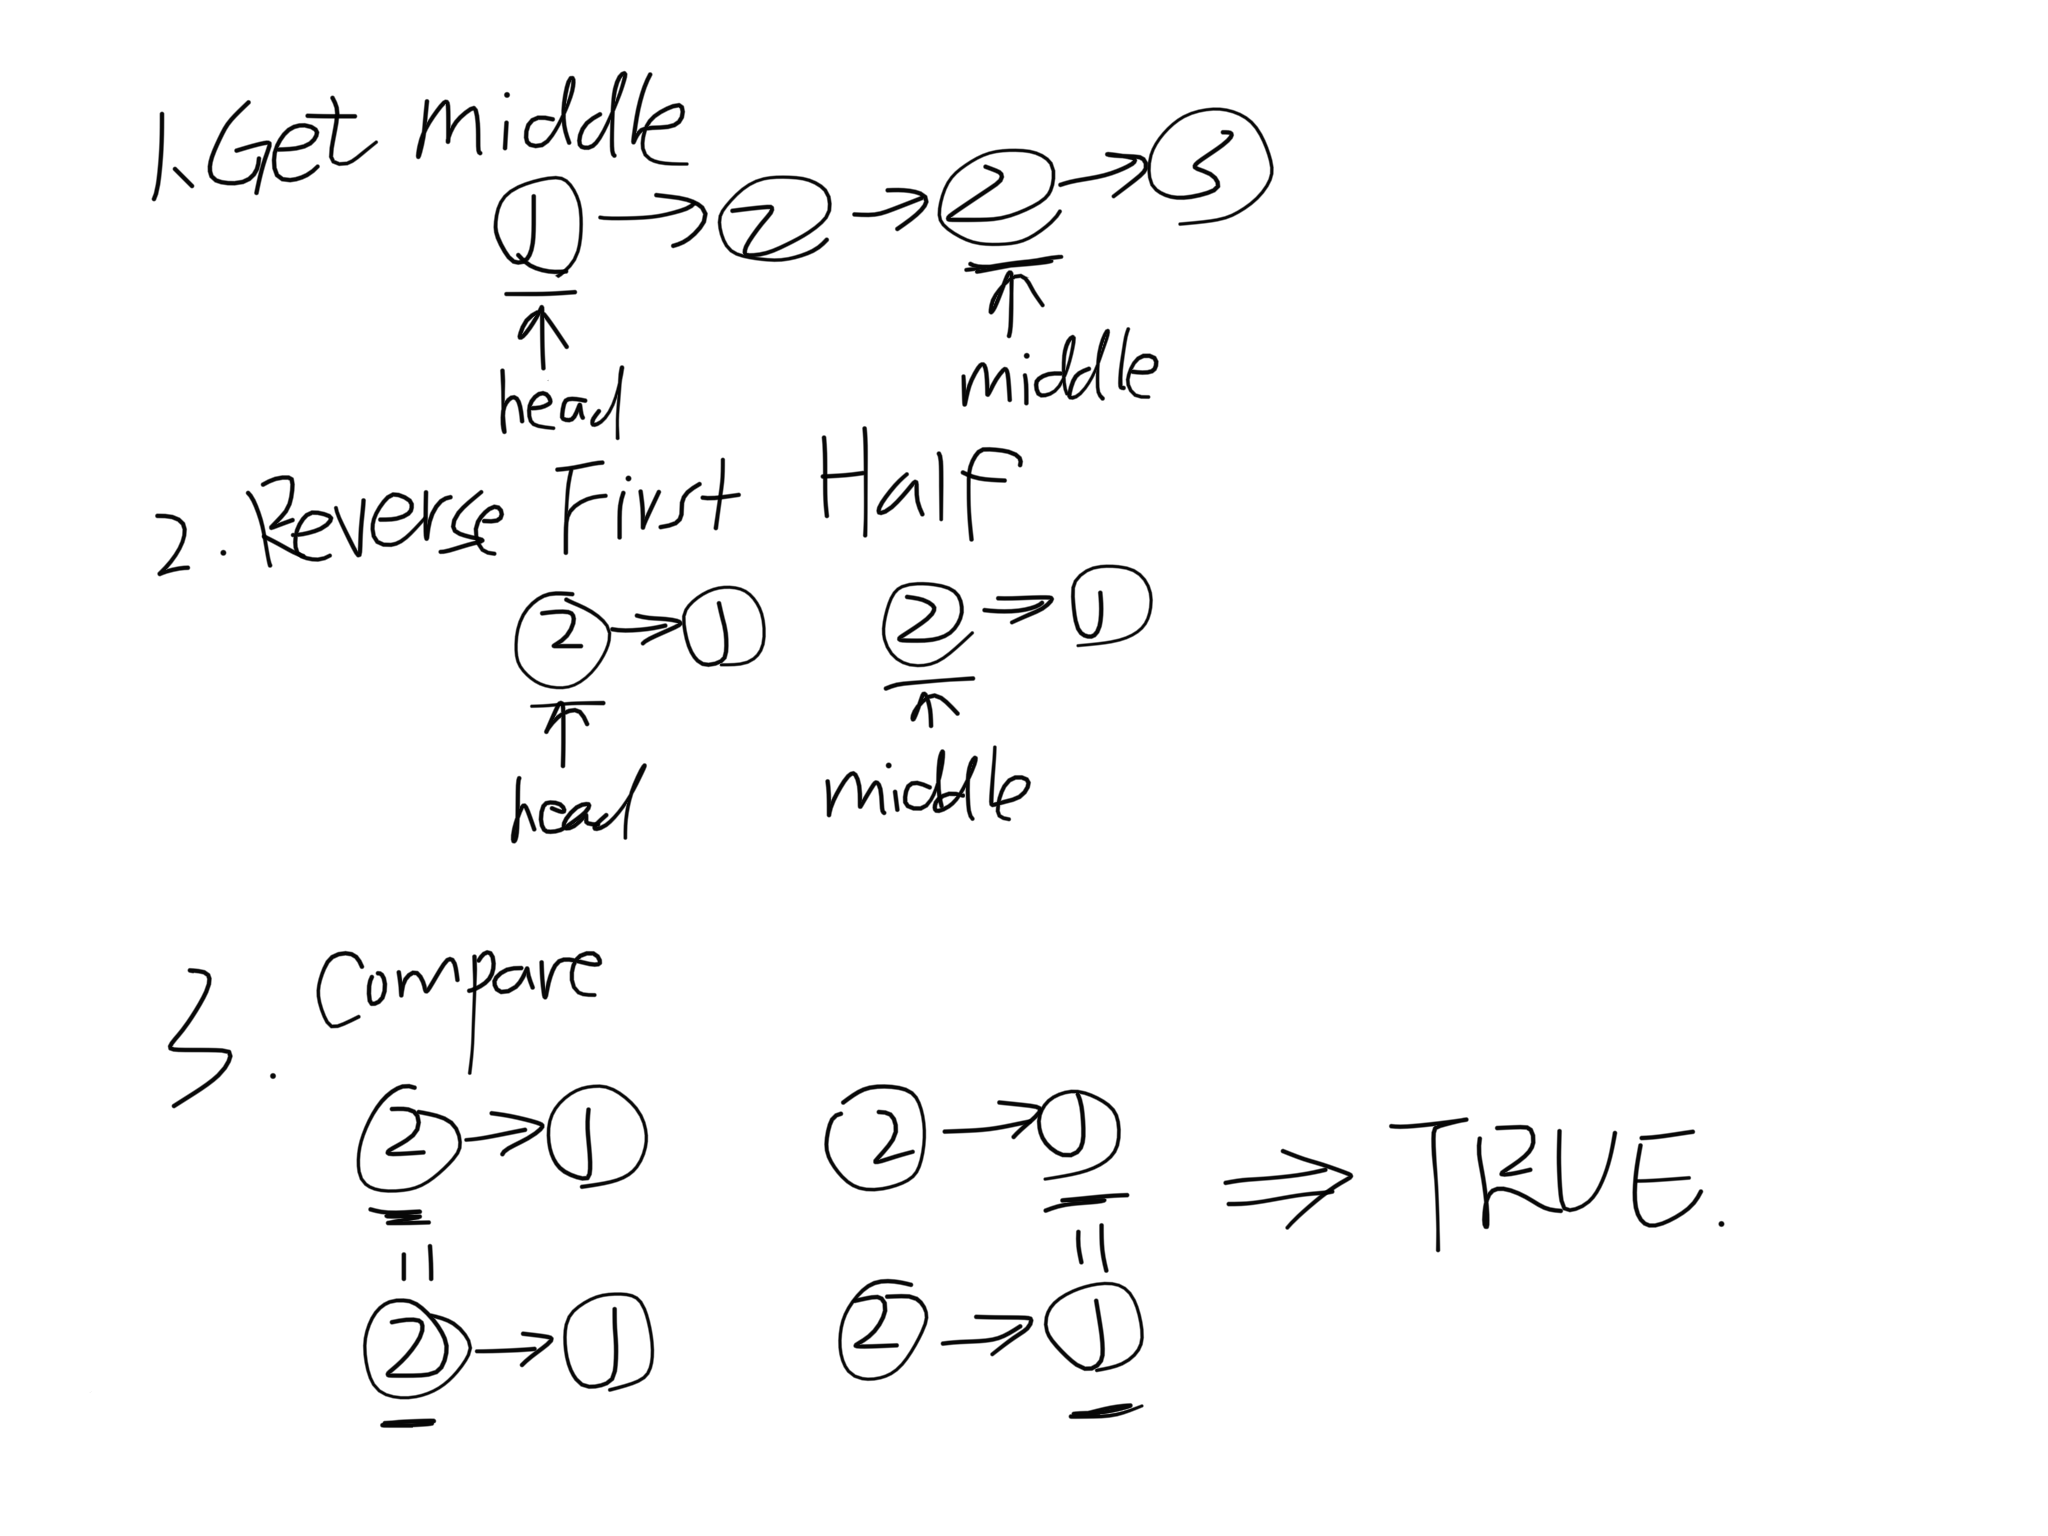 1. Get middle
1 → 2 → 2 → 3
head
middle
2. Reverse First Half
2 → 1 2 → 1
head middle
3. Compare
2 → 1 2 → 1
= = ⇒ TRUE.
2 → 1 2 → 1